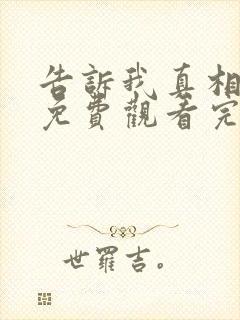 告訴我真相
免費觀看完
世羅吉。